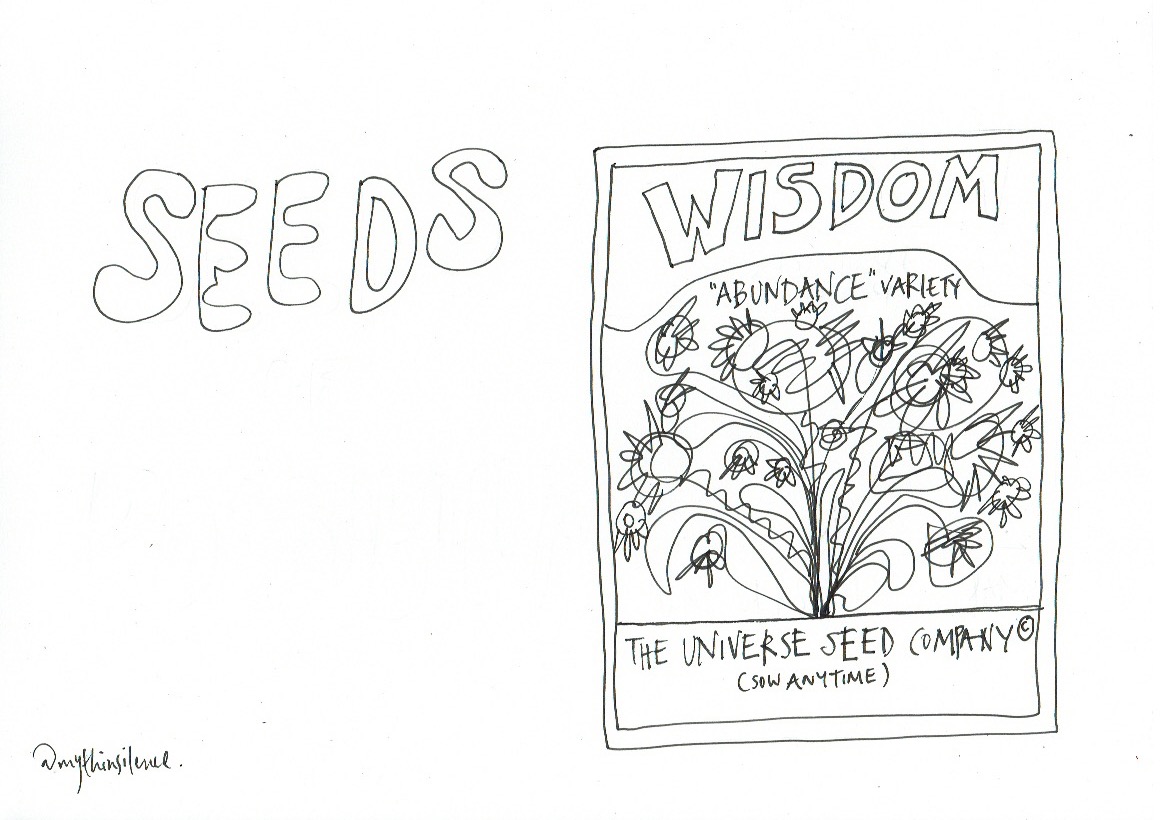 SEEDS
WISDOM
"ABUNDANCE" VARIETY
THE UNIVERSE SEED COMPANY ©
(SOW ANYTIME)
@mythinsilence.